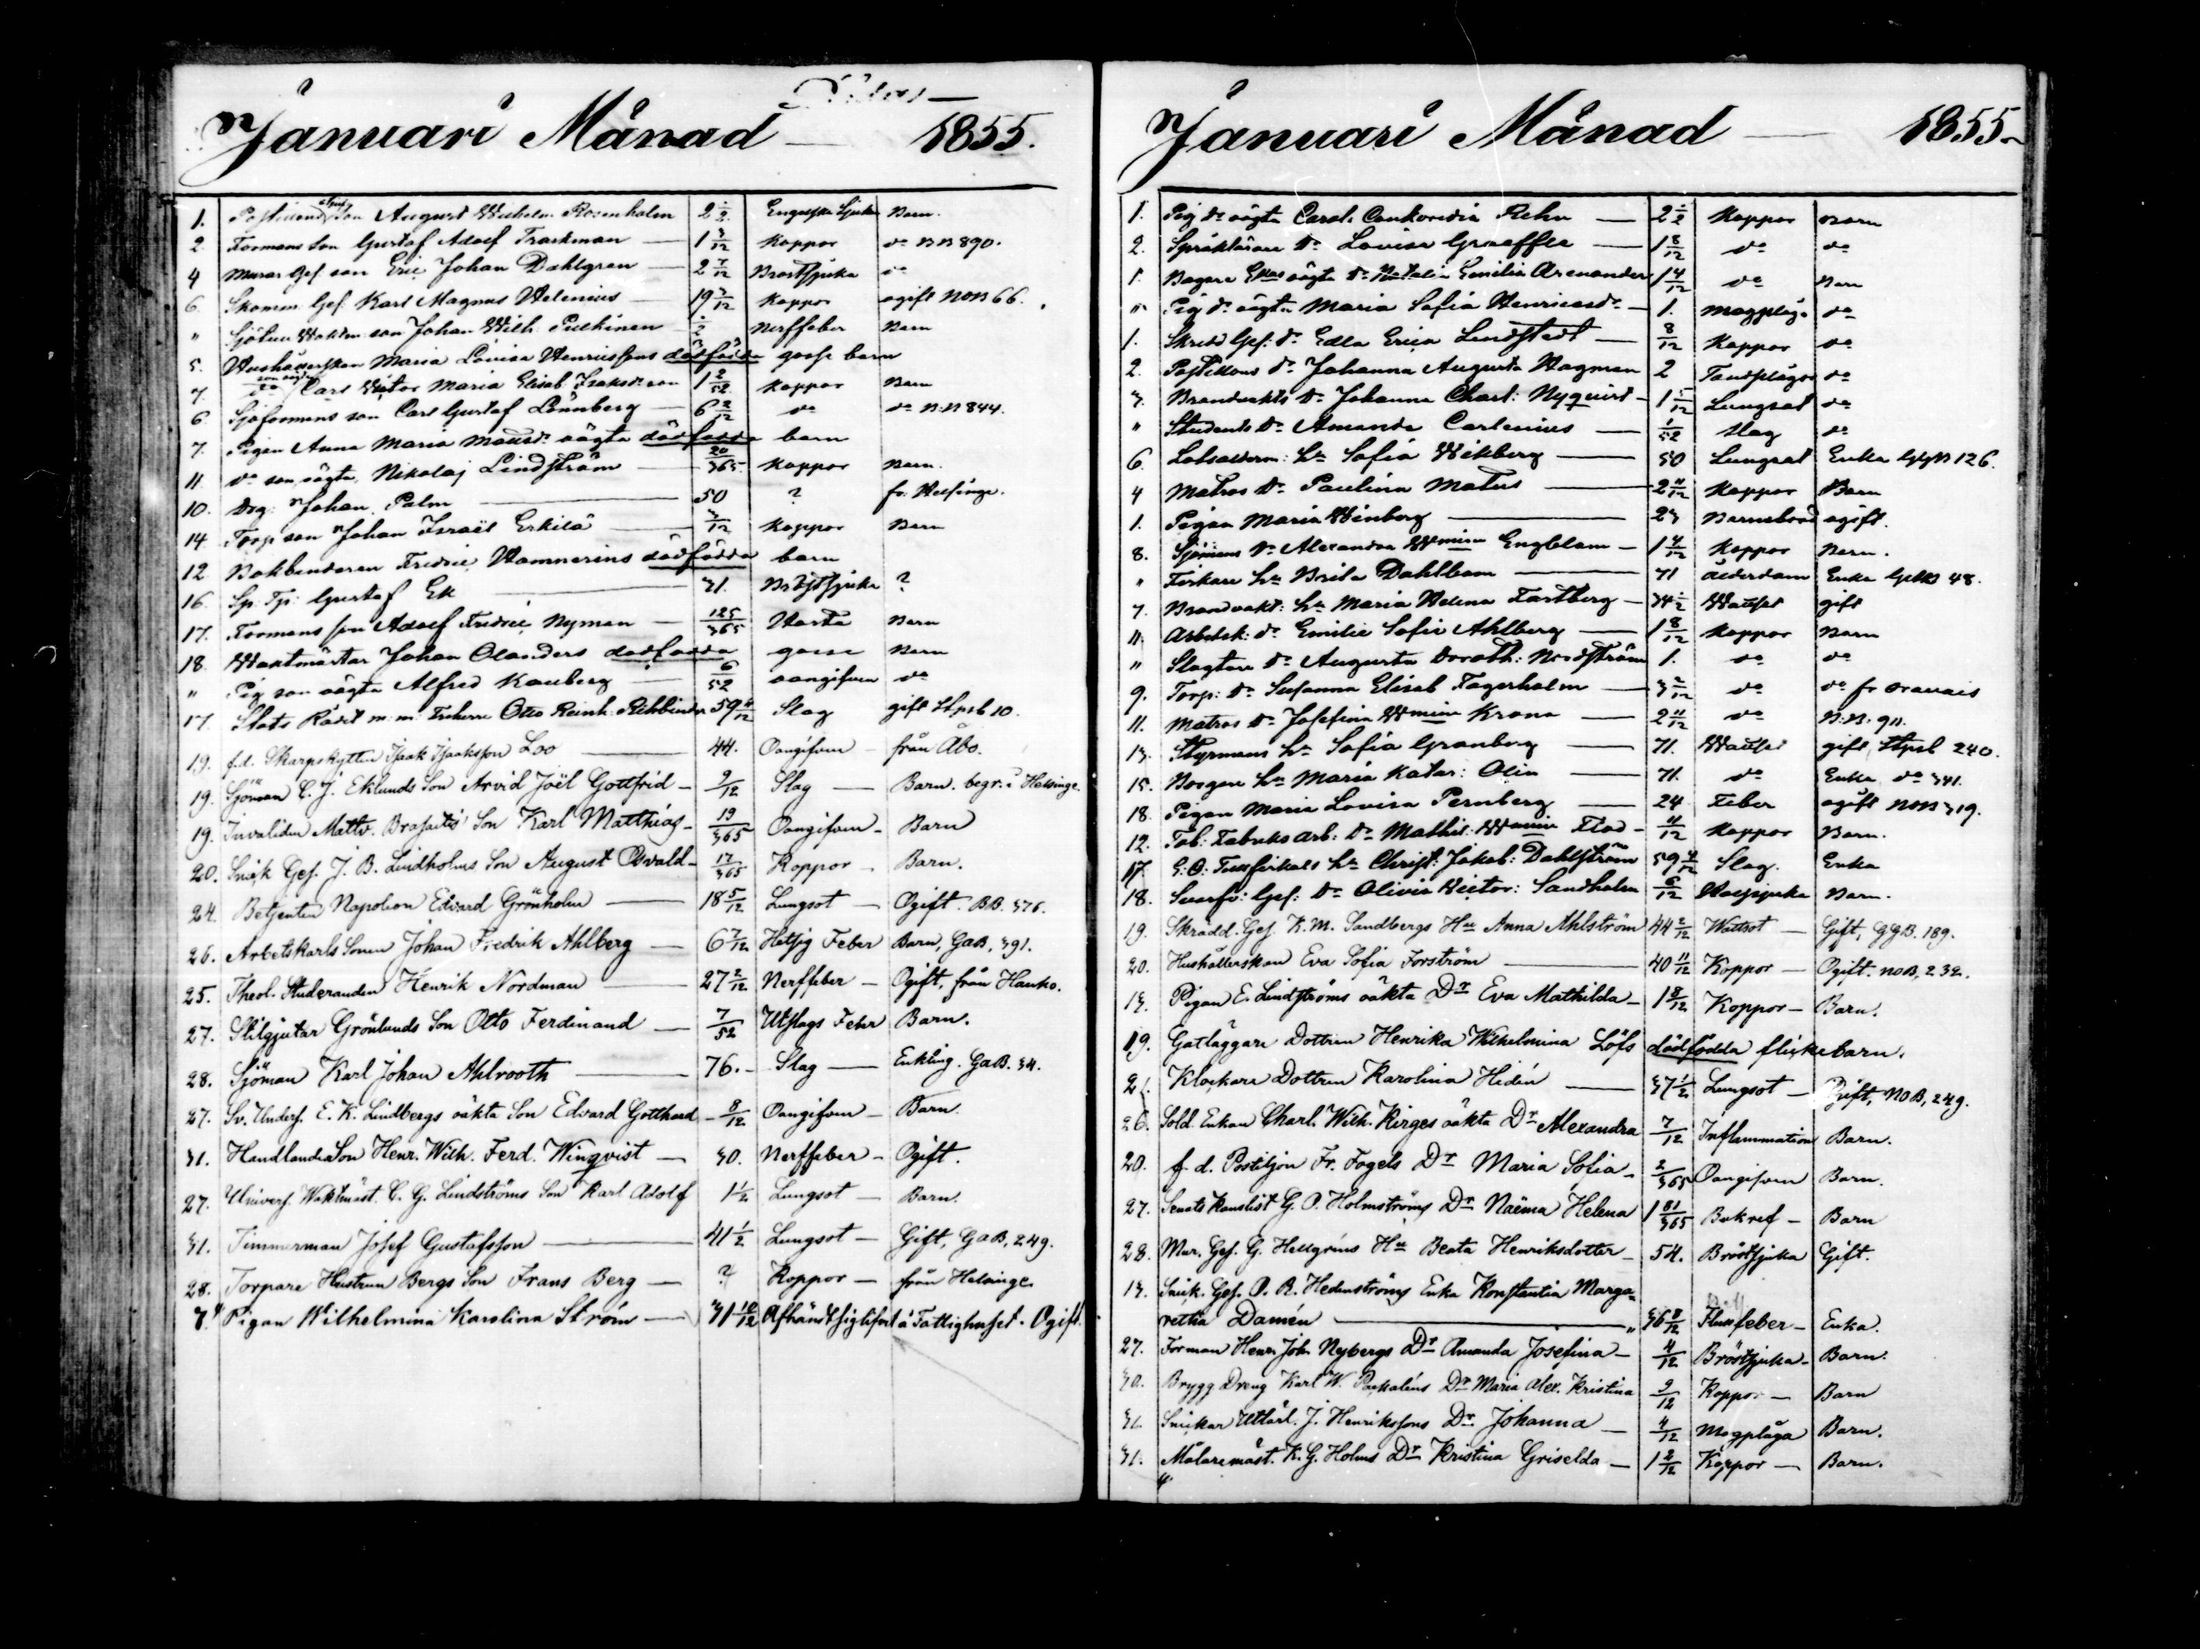 Januari Månad — 1855.
1. son August Wilhelm Rosenholm 2 1/2 Engelska Sjukan Barn.
2. Formans son Gustaf Adolf Trackman — 1 3/12 Koppor do BB 890.
4 Murar Gef. son Eric Johan Dahlgren — 2 7/12 Bröstsjuka do
6. Skomm. Gef. Karl Magnus Helenius — 19 3/12 Koppor ogift NOB 66.
" son Johan Wilh. Pulkinen — 1/2 Nerffeber Barn
5. Hushållerskan Maria Lovisa Henricssons dödfödda gosse barn
7. Carl Victor Maria Elisab. Isaksd:r son 1 2/52 Koppor Barn
6. Sjöformans son Carl Gustaf Lönnberg — 6 2/12 do do BB 844.
7. Pigan Anna Maria Matsd:r oägta dödfödda barn
11. do son oägta Nikolaj Lindström — 20/365 Koppor Barn.
10. Drg: Johan Palm — 50 ? fr. Helsinge.
14. Torp: son Johan Israël Erkilä — 3/12 Koppor Barn
12. Bokbinderen Fredric Hammerins dödfödda barn
16. Sp. Tj: Gustaf Ek — 31. Bröstsjuka ?
17. Formans son Adolf Fredric Nyman — 125/365 Barn
18. Waktmästar Johan Olanders dödfödda gosse Barn
" Pig son oägta Alfred Kauberg — 6/52 oangifven do
17. Stats Rådet m.m. Friherre Otto Reinh. Rehbinder 59 4/12 Slag gift Stpsb 10.
19. f.d. Skarpskytten Isaak Isaaksson Loo — 44. Oangifven — från Åbo.
19. Sjöman C. J. Eklunds Son Arvid Joël Gottfrid — 9/12 Slag — Barn. begr. i Helsinge.
19. Invaliden Mattv. Son Karl Matthias — 13/365 Oangifven — Barn
20. Snick Gef. J. B. Lindholms Son August Osvald — 17/365 Koppor — Barn.
24. Betjenten Napoleon Edvard Grönholm — 18 5/12 Lungsot — Ogift. BB. 376.
26. Arbetskarls Sonen Johan Fredrik Ahlberg — 6 7/12 Hetsig Feber Barn, GaB, 391.
25. Theol. Studeranden Henrik Nordman — 27 2/12 Nerffeber — Ogift, från Hauho.
27. Stilgjutar Grönlunds Son Otto Ferdinand — 7/52 Utslags Feber Barn.
28. Sjöman Karl Johan Ahlrooth — 76. — Slag — Enkling. GaB. 34.
27. Sv. Underf. E. K. Lindbergs oäkta Son Edvard Gotthard — 8/12 Oangifven — Barn.
31. HandlandeSon Henr. Wilh. Ferd. Winqvist — 30. Nerffeber — Ogift.
27. Univers. Waktmäst. C. G. Lindströms Son Karl Adolf 1 1/2 Lungsot — Barn.
31. Timmerman Josef Gustafsson — 41 1/2 Lungsot — Gift, GaB, 249.
28. Torpare Hustrun Bergs Son Frans Berg — ? Koppor — från Helsinge.
7. Pigan Wilhelmina Karolina Ström — 31 10/12 Afhändt sig lifvet å Fattighuset. Ogift.
Januari Månad — 1855.
1. Pig dr oägta Carol. Conkordia Rehn — 2 1/2 Koppor Barn
2. Språklärare dr Lovisa Graeffle — 1 8/12 do do
1. Bagare oägta dr Natalia Emilia Arenander 1 4/12 do Barn
" Pig dr oägta Maria Sofia Henricsdr — 1. Magplåga do
1. Skredd Gef: dr Edla Erica Lindstedt — 8/12 Koppor do
2. Postillons dr Johanna Augusta Hagman 2 Tandplågor do
3. Brandvakts dr Johanna Charl: Nyqvist — 1 5/12 Lungsot do
" Students dr Amanda Carlenius — 1/52 Slag do
6. Lotsålderm: Ha Sofia Wikberg — 50 Lungsot Enka GgB 126.
4 Matros dr Paulina Matus — 2 11/12 Koppor Barn
1. Pigan Maria Winberg — 23 Barnsbörd ogift.
8. Sjömans dr Alexandra Wmina Engblom — 1 4/12 Koppor Barn.
" Fiskare Ha Brita Dahlbom — 71 ålderdom Enka 48.
7. Brandvakt: Ha Maria Helena Fastberg — 34 1/2 Wattsot gift
11. Arbetsk: dr Emilie Sofie Ahlberg — 1 8/12 Koppor Barn
" Slagtare dr Augusta Doroth: Nordström 1. do do
9. Torp: dr Susanna Elisab Fagerholm — 3 2/12 do do fr Oravais
11. Matros dr Josefina Wmina Krona — 2 11/12 do B.B. 911.
13. Styrmans Ha Sofia Granberg — 71. Wattsot gift Stpsb 240.
15. Borgare Ha Maria Katar: Olin — 71. do Enka do 341.
18. Pigan Maria Lovisa Pernberg — 24 Feber ogift NOB 319.
12. Tob: Fabriks arb: dr Mathil: Wmina Flod — 4/12 Koppor Barn.
17. E: O: Ha Christ: Jakob: Dahlström 59 4/12 Slag. Enka
18. Svarfv: Gef: dr Olivia Victor: Sandholm 6/12 Barn.
19. Skrädd. Gef. K. M. Sandbergs Hu Anna Ahlström 44 2/12 Wattsot — Gift, GgB. 189.
20. Hushållerskan Eva Sofia Forström — 40 11/12 Koppor — Ogift. NOB, 232.
13. Pigan E. Lindströms oäkta Dr Eva Mathilda — 1 8/12 Koppor — Barn.
19. Gatläggare Dottren Henrika Wilhelmina Löfs dödfödda flickebarn.
Klockare Dottren Karolina Hidén — 37 1/2 Lungsot — Ogift, NOB, 249.
26. Sold. Enkan Charl. Wilh. Kirges oäkta Dr Alexandra 7/12 Inflammation Barn.
20. f.d. Postiljon Fr. Fogels Dr Maria Sofia — 2/365 Oangifven Barn.
27. Senats Kanslist G. O. Holmströms Dr Naëma Helena 1 81/365 Bukref — Barn
28. Mur. Gef. G. Hellgréns Hu Beata Henriksdotter — 54. Bröstsjuka Gift.
13. Snick. Gef. O. R. Hedenströms Enka Konstantia Marga=
retha Damén — 36 8/12 Flussfeber — Enka.
27. Forman Henr. Joh. Nybergs Dr Amanda Josefina — 4/12 Bröstsjuka — Barn.
30. Brygg Dreng Karl W. Paskaléns Dr Maria Alex. Kristina 9/12 Koppor — Barn
31. Snickar Utlärl. J. Henrikssons Dr Johanna — 4/12 Magplåga Barn.
31. Målaremäst. K. G. Holms Dr Kristina Griselda — 1 2/12 Koppor — Barn.